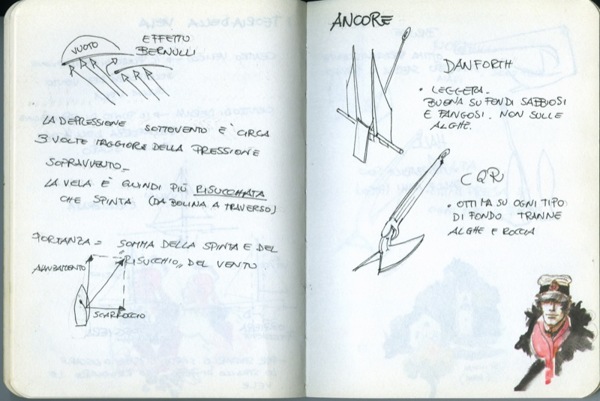 EFFETTO
BERNULLI
VUOTO
LA DEPRESSIONE SOTTOVENTO È CIRCA
3 VOLTE MAGGIORE DELLA PRESSIONE
SOPRAVVENTO
LA VELA È QUINDI PIÙ RISUCCHIATA
CHE SPINTA (DA BOLINA A TRAVERSO)
PORTANZA = SOMMA DELLA SPINTA E DEL
"RISUCCHIO" DEL VENTO
AVANZAMENTO
SCARROCCIO
ANCORE
DANFORTH
• LEGGERA.
BUONA SU FONDI SABBIOSI
E FANGOSI. NON SULLE
ALGHE.
CQR
• OTTIMA SU OGNI TIPO
DI FONDO TRANNE
ALGHE E ROCCIA